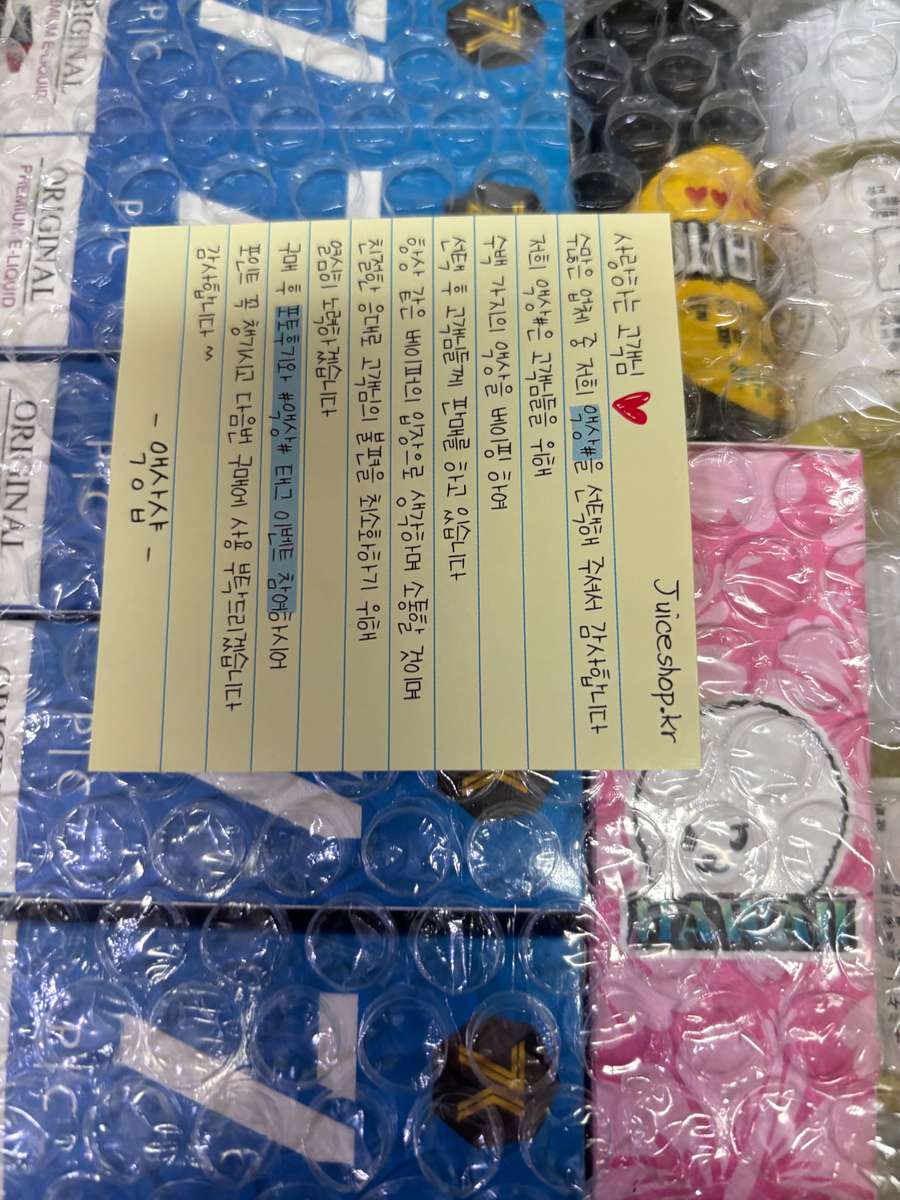 Juiceshop.kr
사랑하는 고객님
수많은 업체 중 저희 액상#을 선택해 주셔서 감사합니다
저희 액상#은 고객님들을 위해
수백 가지의 액상을 베이핑 하여
선택 후 고객님들께 판매를 하고 있습니다
항상 같은 베이퍼의 입장으로 생각하며 소통할 것이며
친절한 응대로 고객님의 불편을 최소화하기 위해
열심히 노력하겠습니다
구매 후 포토후기와 #액상# 태그 이벤트 참여하시어
포인트 꼭 챙기시고 다음번 구매에 사용 부탁드리겠습니다
감사합니다 ^^
- 액상샵 -
ORIGINAL
PREMIUM E-LIQUID
ORIGINAL
PREMIUM E-LIQUID
ORIGINAL
ORIGINAL
HAWAII